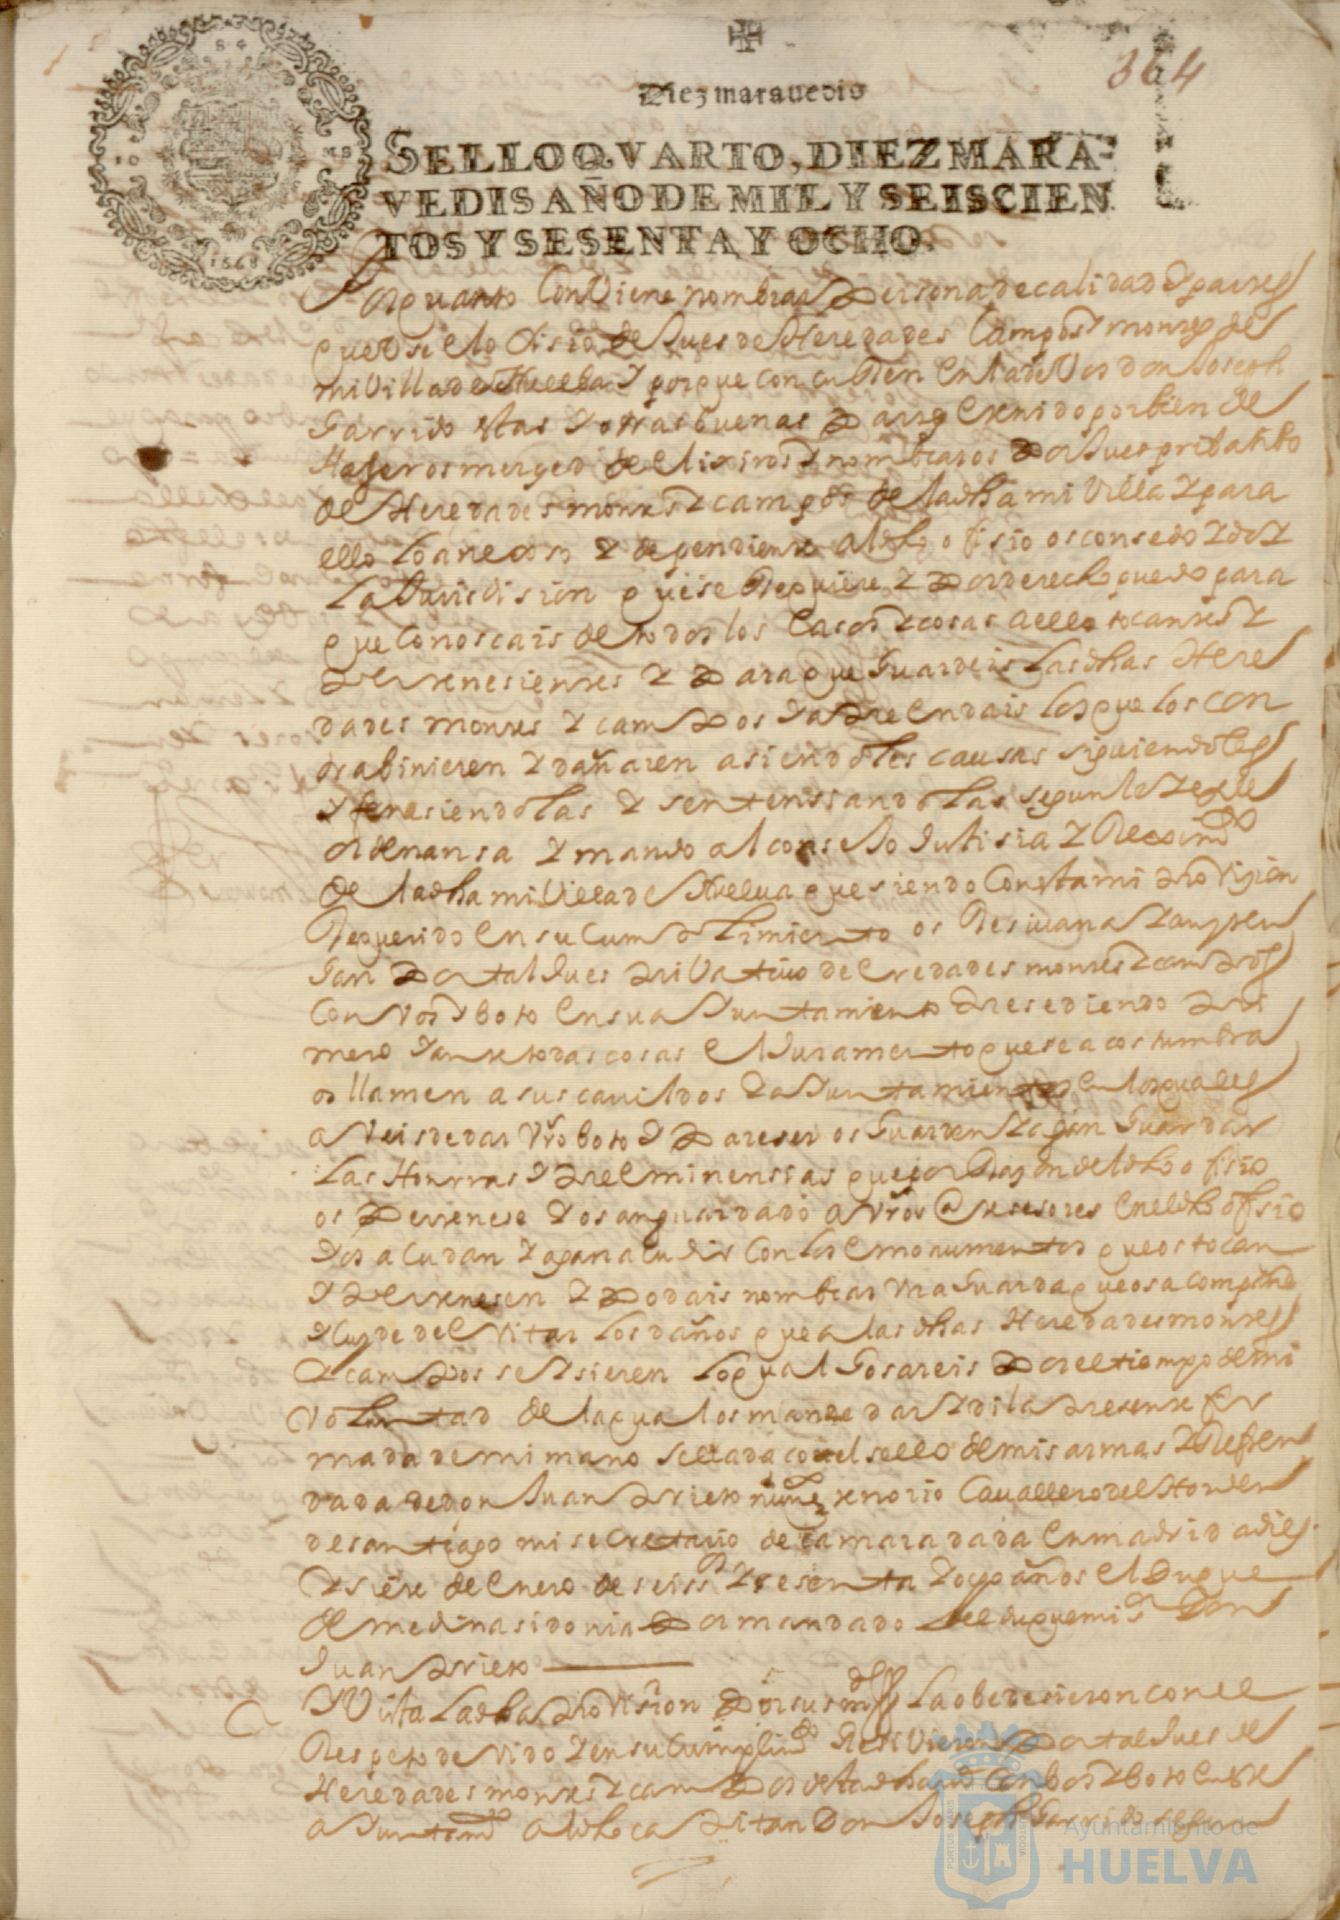 364
Diez marauedis
SELLO QVARTO, DIEZ MARA-
VEDIS AÑO DE MIL Y SEISCIEN
TOS Y SESENTA Y OCHO.
1668
Por quanto Conviene nombrar Persona de calidad y partes
que use el ofisio de Jues de Heredades Campos y montes de
mi Villa de Huelba y porque concurren en la de Vos don Joseph
Garrido estas y otras buenas Partes e tenido por bien de
Haseros merçed de elixiros y nombraros Por Jues pribatibo
de Heredades montes y campos de la dha mi Villa y para
ello lo anexo y dependiente al dho ofisio os consedo y doy
La Jurisdision que se Requiere y Por derecho puedo para
que Conoscais de todos los Casos y cosas a ello tocantes y
Pertenesientes y Para que Guardeis Las dhas Here
dades montes y campos y aPrendais los que los con
trabinieren y dañaren asiendoles causas siguiendolas
y fenesiendolas y sentensiandolas segun leyes y
ordenansa y mando al conseJo Justisia y Regim.to
de la dha mi Villa de Huelua que siendo Con esta mi Provision
Requerido en su CumPlimiento os Resiuan y tengan
Por tal Jues PriVatiuo de eredades montes y camPos
Con Vos y boto en su aJuntamiento Presediendo Pri
mero y ante todas cosas el Juramento que se acostumbra
os llamen a sus cauildos y aJuntamientos en los quales
aVeis de dar Vro boto y Pareser os Guarden y agan Guardar
Las Honrras y PreEminensias que por Raçon del dho ofisio
os Pertenese y os an guardado a Vros antesesores en el dho ofisio
y os acudan y agan acudir Con los emonumentos que os tocan
y Pertenesen y Podais nombrar Vna Guarda que os acompañe
y ayude del eVitar Los daños que a las dhas Heredades montes
y camPos se Hisieren Lo qual Gosareis Por el tiempo de mi
Voluntad de la qual os mande dar y di la Presente fir
mada de mi mano sellada con el sello de mis armas y Refren
dada de don Juan Prieto nuñez tenorio Cauallero del Horden
de santiago mi secretario de camara dada en madrid a dies
y siete de Enero de seis.s y sesenta y ocho años el Duque
de medina sidonia Por mandado del duque mi s.r Don
Juan Prieto
y Vista La dha Provision Por sus mds La obedesieron con el
Respeto deVido y en su Cumplim.to ResiVieron Por tal Jues de
Heredades montes y camPos Con bos y boto en este
aJuntam.to al dho caPitan Don Joseph Garrido segun
Ayuntamiento de
HUELVA